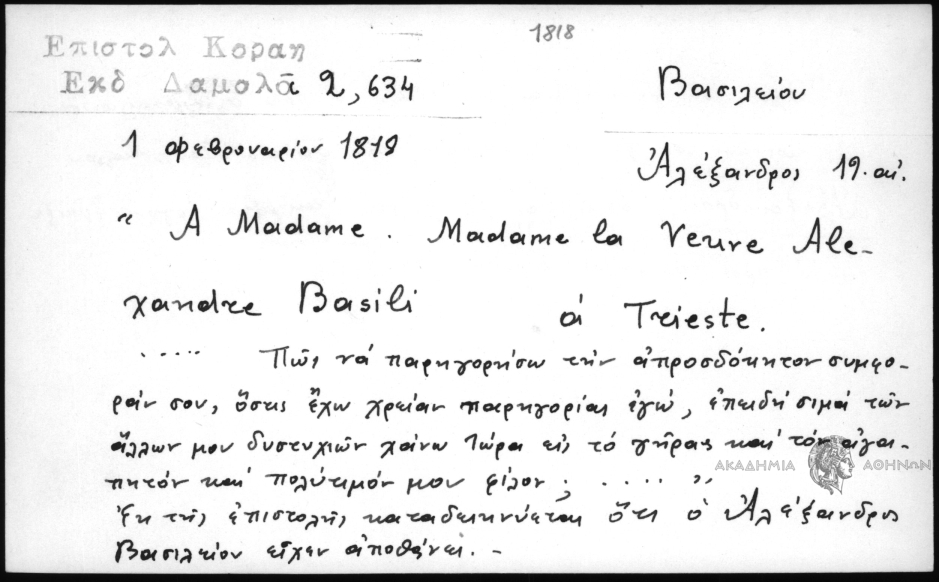 1818
Επιστολ Κοραη
Εκδ Δαμολᾶ 2,634
Βασιλείου
1 Φεβρουαρίου 1818
Ἀλέξανδρος 19. αἰ.
“ A Madame. Madame la Veuve Ale-
xandre Basili à Trieste.
..... Πῶς νά παρηγορήσω τήν ἀπροσδόκητον συμφο-
ράν σου, ὅστις ἔχω χρείαν παρηγορίας ἐγώ, ἐπειδή σιμά τῶν
ἄλλων μου δυστυχιῶν χάνω τώρα εἰς τό γῆρας καί τόν ἀγα-
πητόν καί πολύτιμόν μου φίλον; ..... ”
ΑΚΑΔΗΜΙΑ ΑΘΗΝΩΝ
Ἐκ τῆς ἐπιστολῆς καταδεικνύεται ὅτι ὁ Ἀλέξανδρος
Βασιλείου εἶχεν ἀποθάνει. -